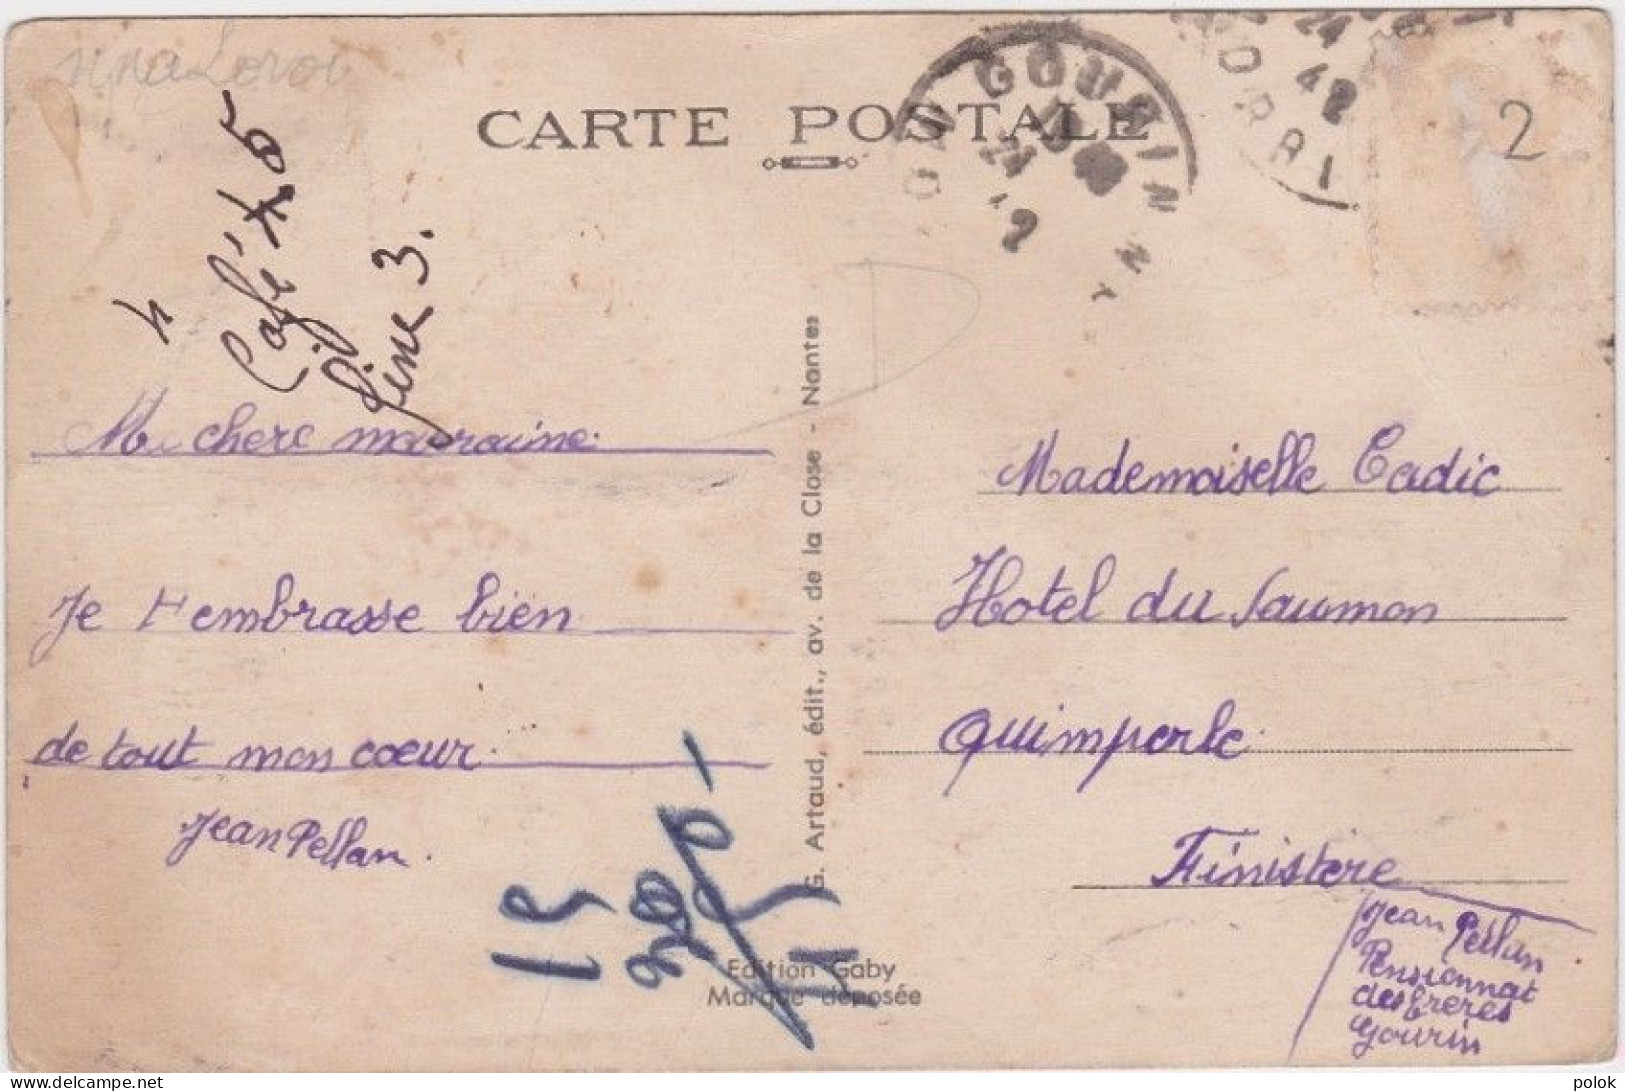 CARTE POSTALE
GOURIN
24
42
24
42
2
Café
fine 3.
Ma chere marraine.
Je t'embrasse bien
de tout mon coeur.
Jean Pellan.
G. Artaud, édit., av. de la Close - Nantes
Edition Gaby
Marque déposée
Mademoiselle Cadic
Hotel du Saumon
Quimperle.
Finistere
Jean Pellan.
Pensionnat
des frères
Gourin
polok